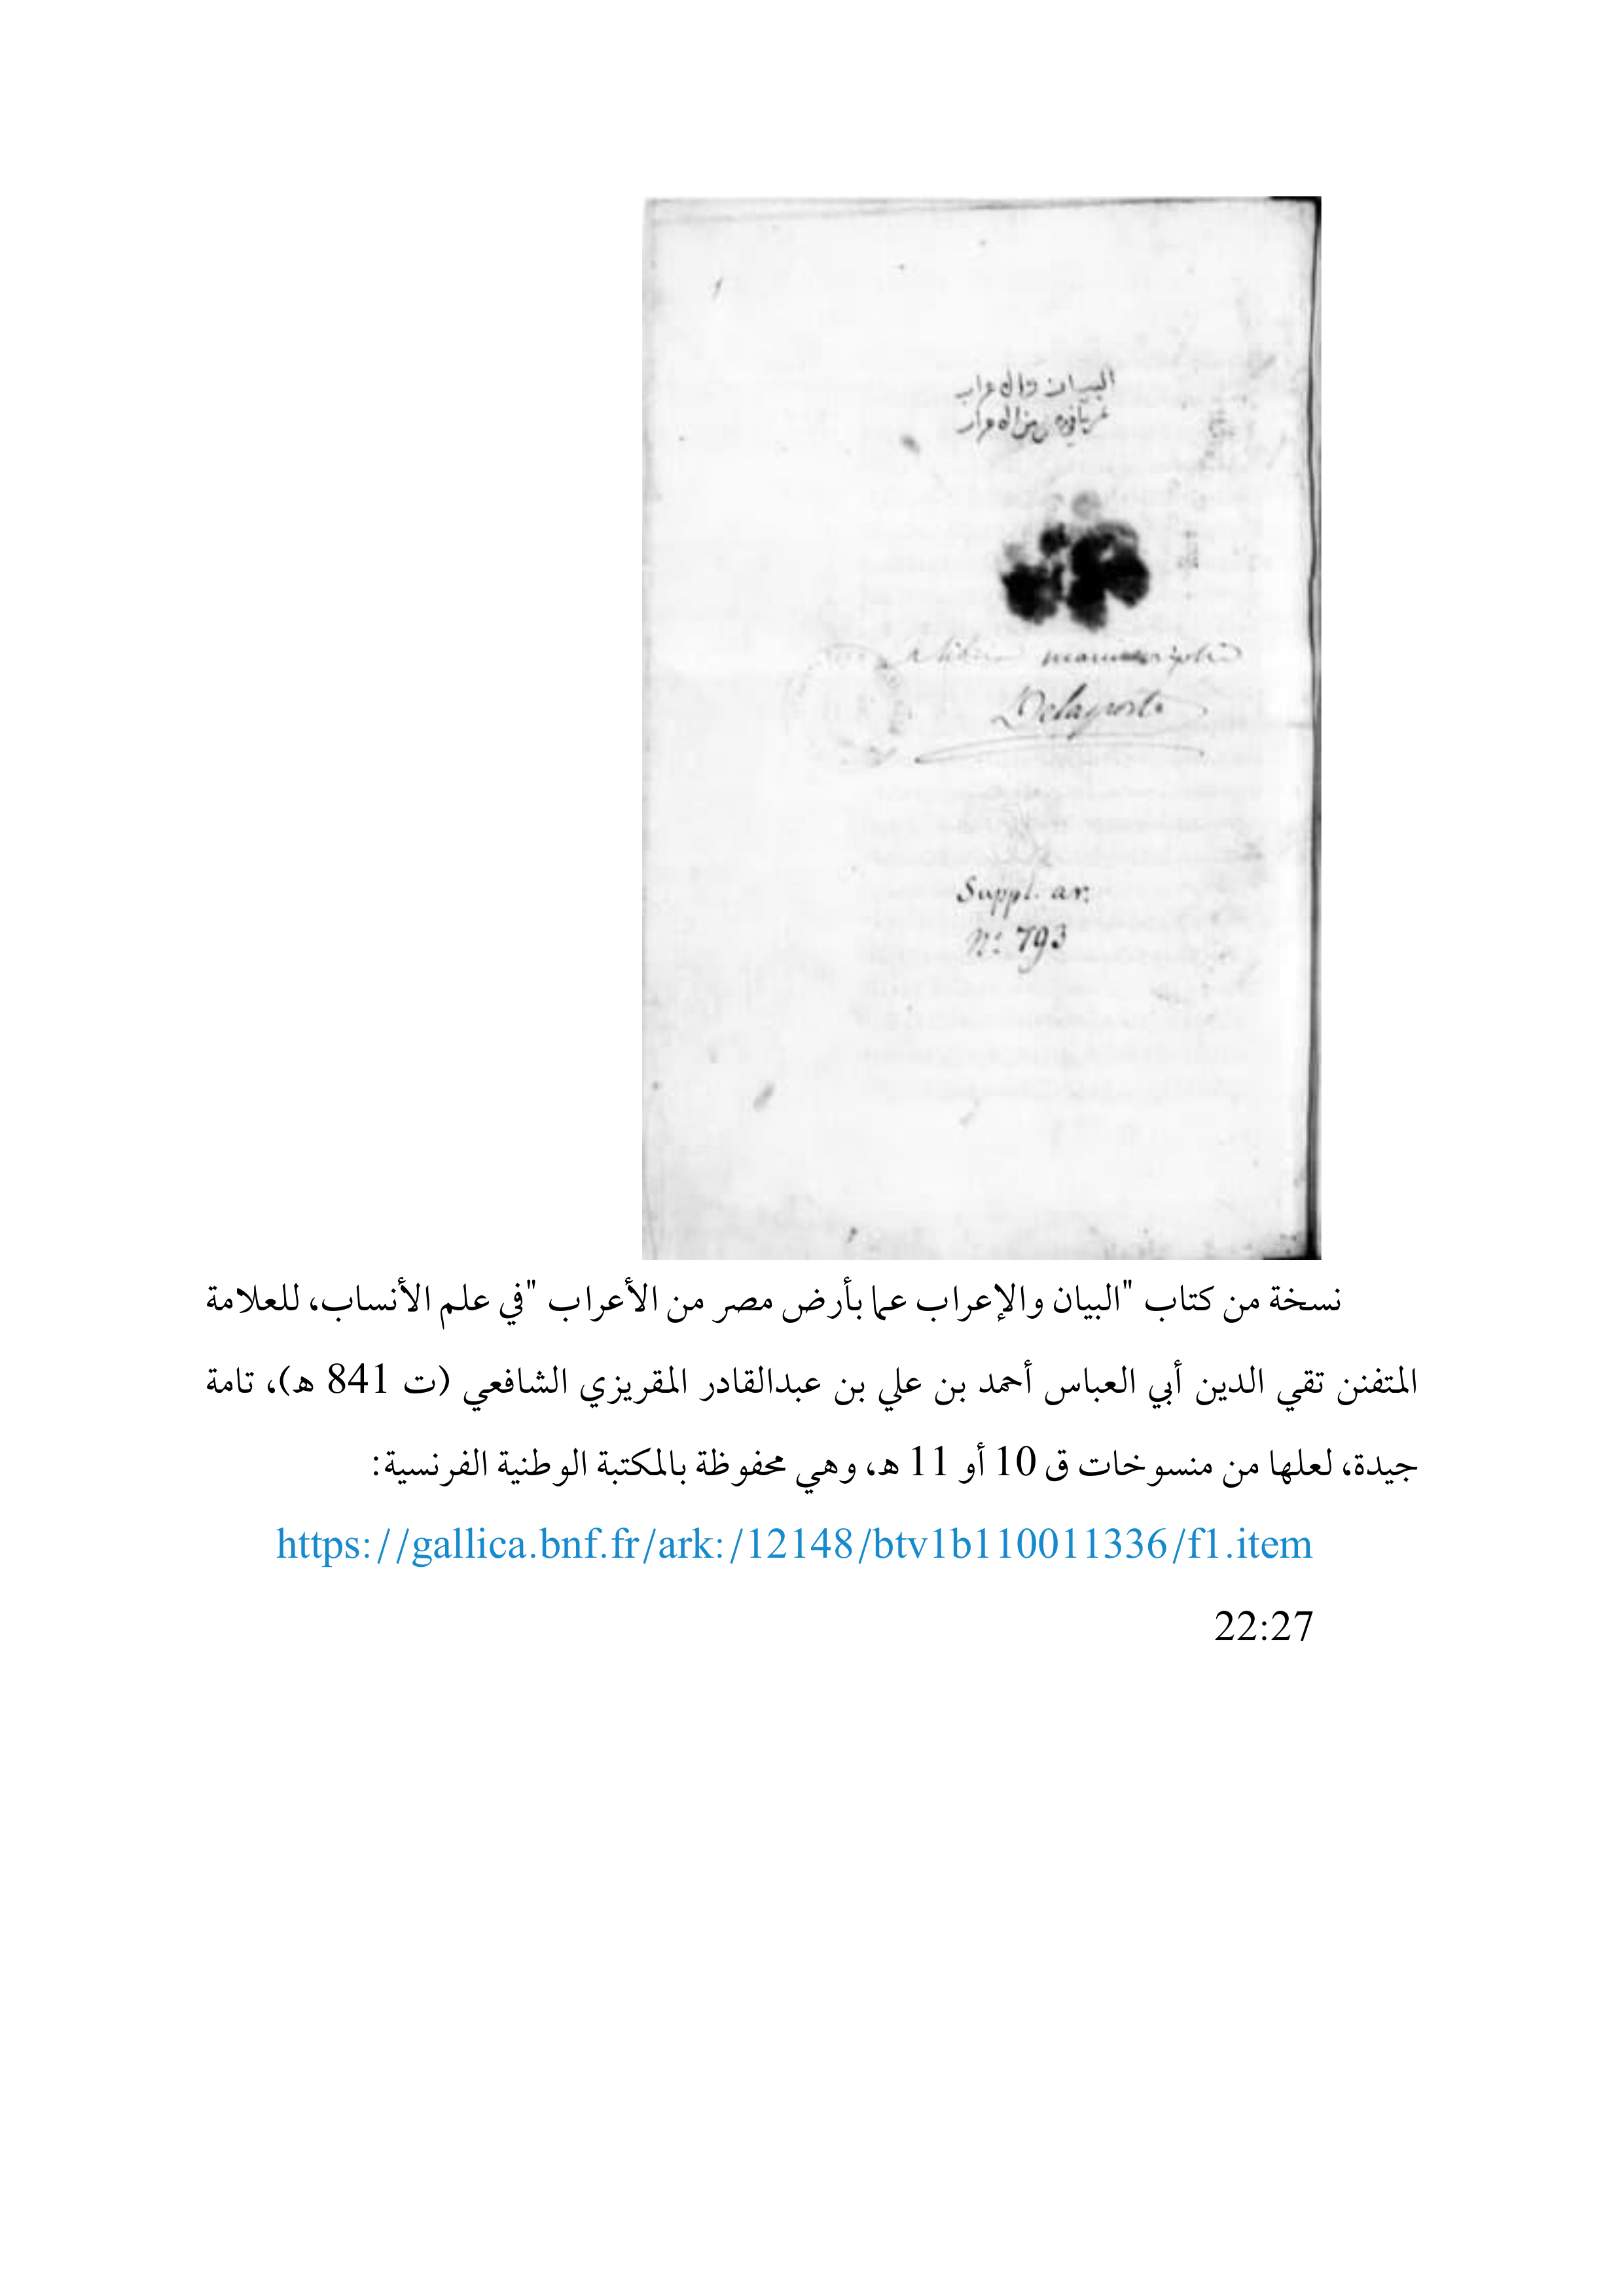 البيان والاعراب
manuscriptis
Delaporte
Suppl. ar.
N.° 793
نسخة من كتاب "البيان والإعراب عما بأرض مصر من الأعراب "في علم الأنساب، للعلامة
المتفنن تقي الدين أبي العباس أحمد بن علي بن عبدالقادر المقريزي الشافعي (ت 841 هـ)، تامة
جيدة، لعلها من منسوخات ق 10 أو 11 هـ، وهي محفوظة بالمكتبة الوطنية الفرنسية:
https://gallica.bnf.fr/ark:/12148/btv1b110011336/f1.item
22:27